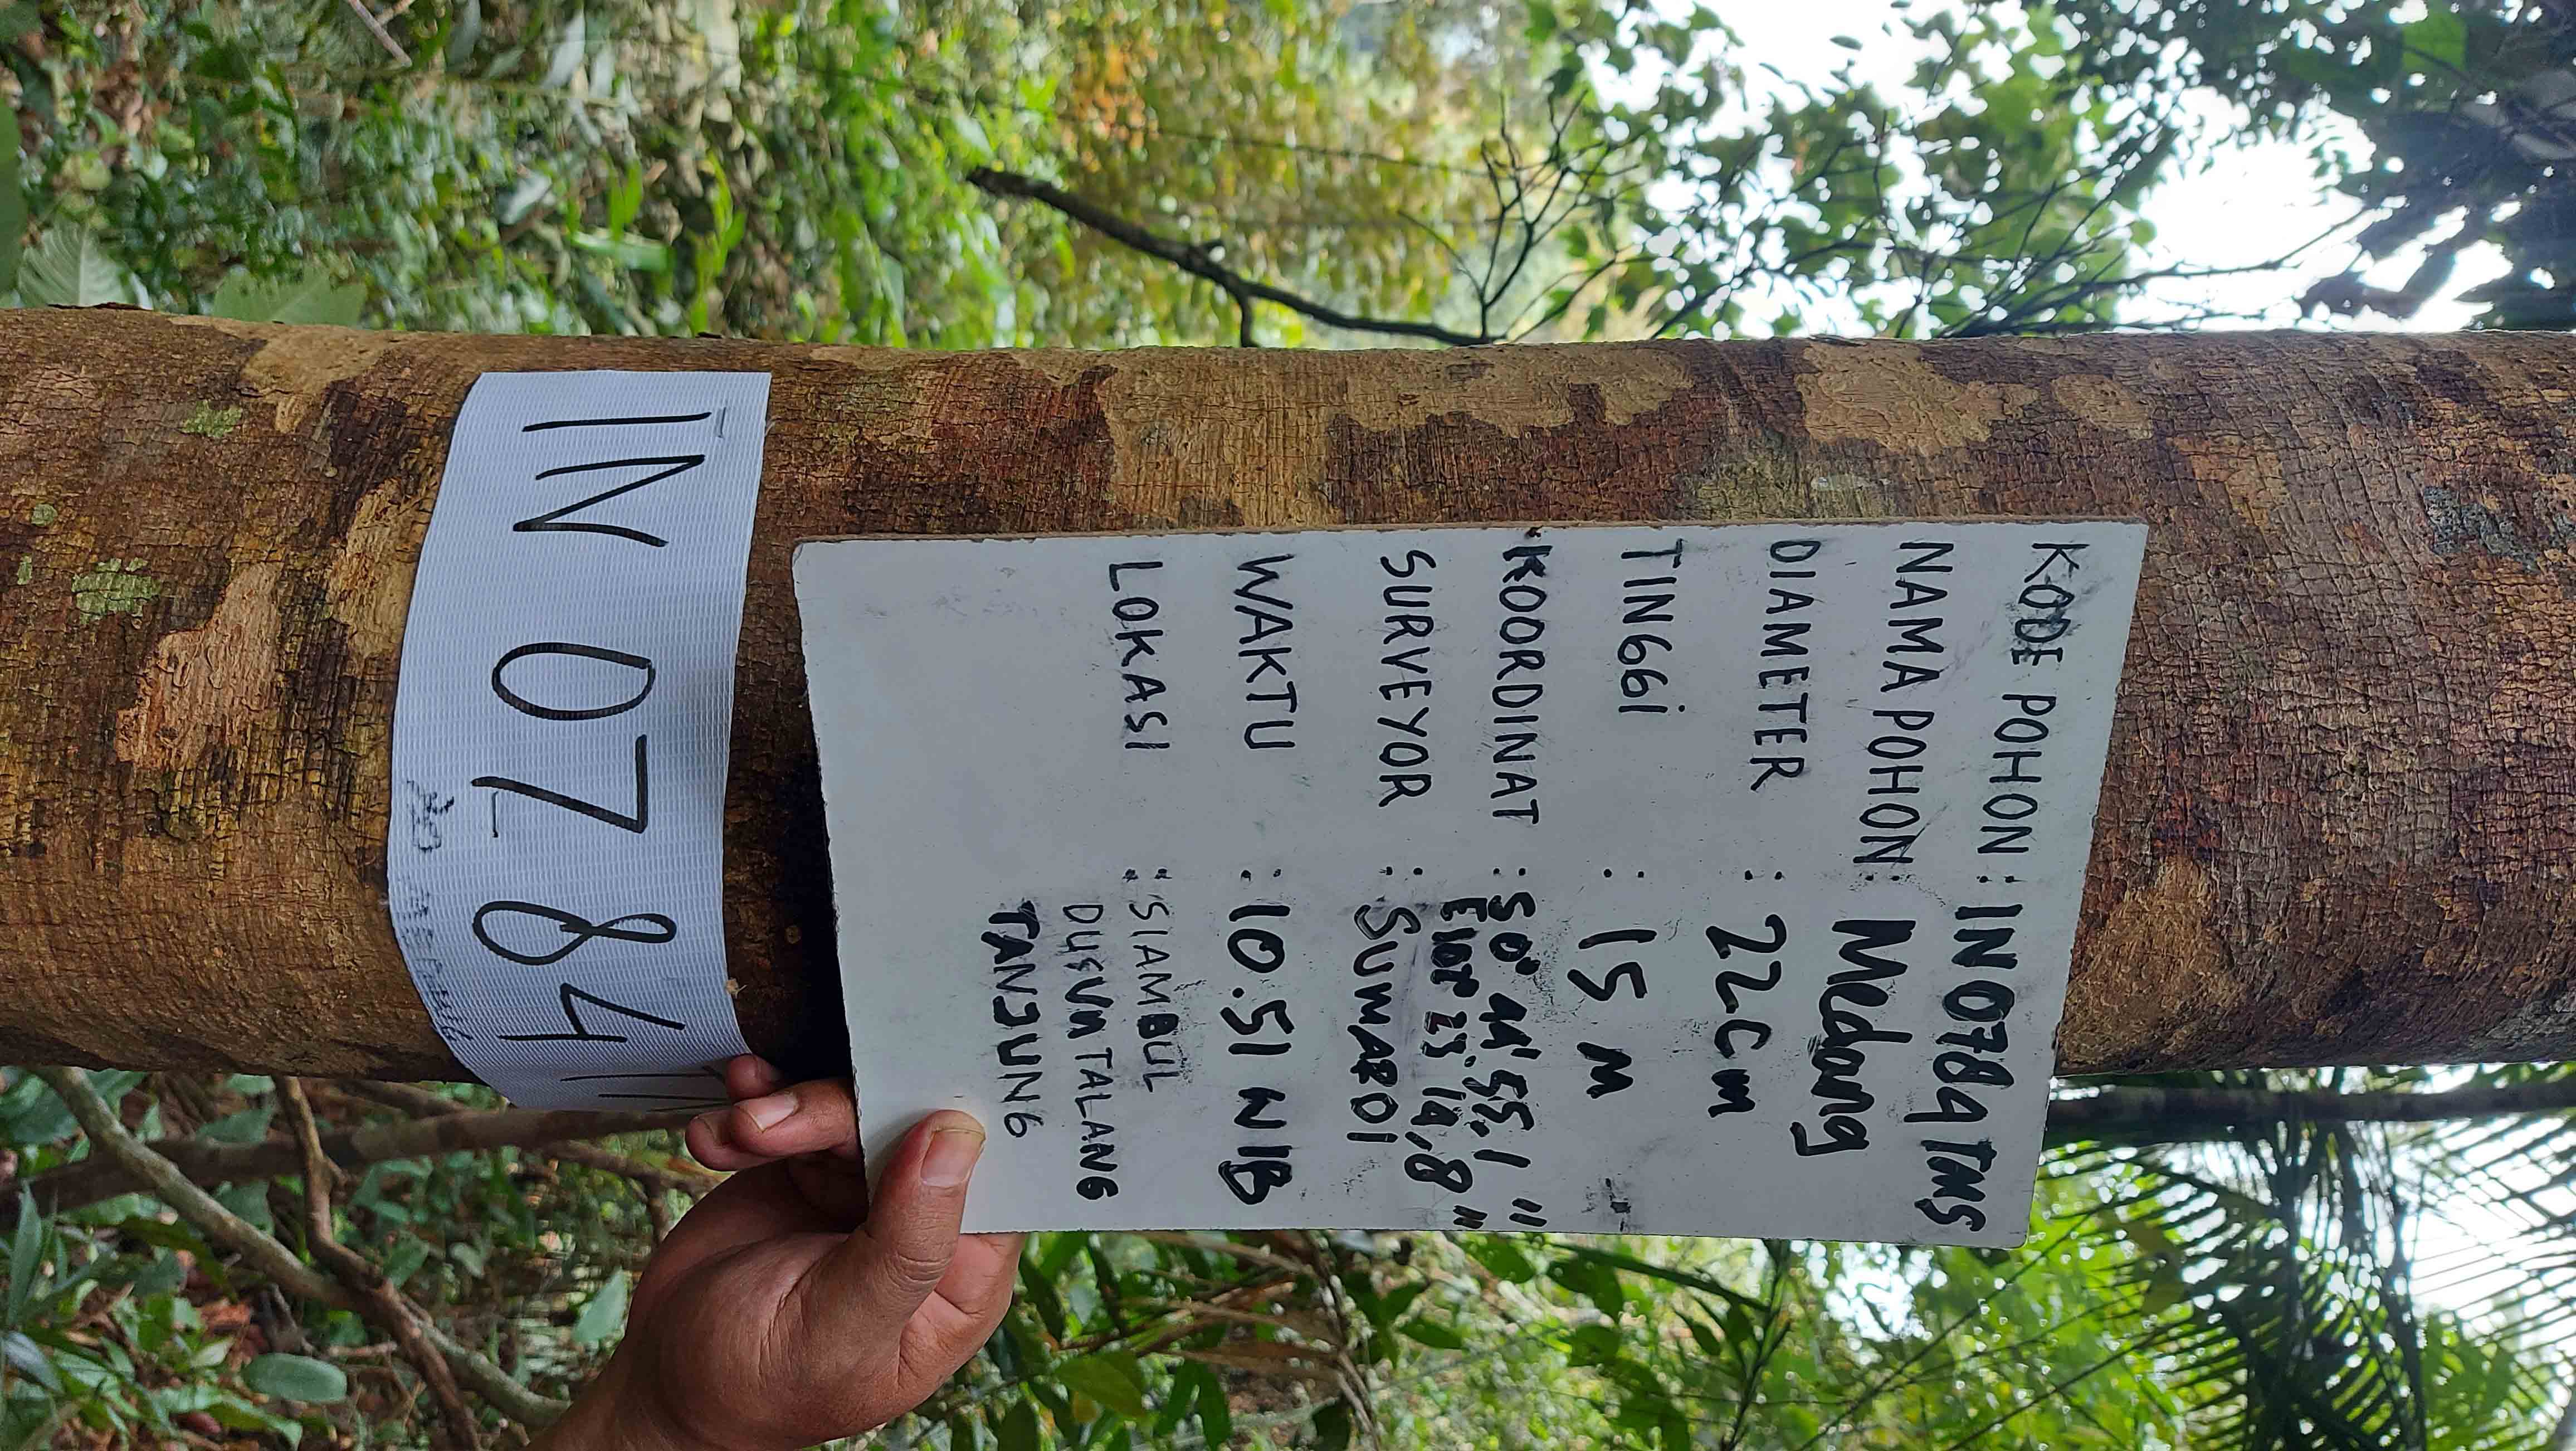 KODE POHON : IN 0784 TMS
NAMA POHON : Medang
DIAMETER : 22 Cm
TINGGI : 15 M
KOORDINAT : S 0° 44' 55,1"
E 14,8"
SURVEYOR : SUMARDI
WAKTU : 10.51 WIB
LOKASI : SIAMBUL
DUSUN TALANG
TANJUNG
IN 0784